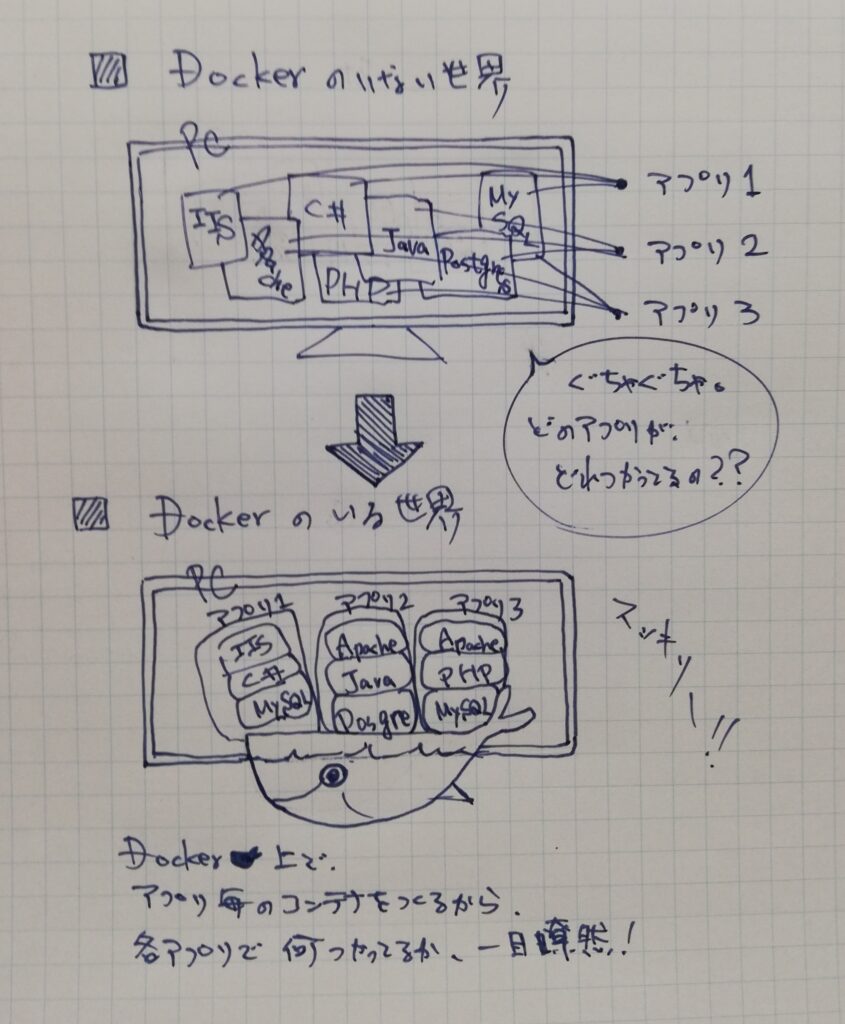 Dockerのいない世界
PC
IIS
Apache
C#
PHP
Java
My
SQL
Postgre
アプリ1
アプリ2
アプリ3
ぐちゃぐちゃ。
どのアプリが、
どれつかってるの??
Dockerのいる世界
PC
アプリ1
IIS
C#
MySQL
アプリ2
Apache
Java
Posgre
アプリ3
Apache
PHP
MySQL
スッキリー!!
Docker上で、
アプリ毎のコンテナをつくるから、
各アプリで何つかってるか、一目瞭然!